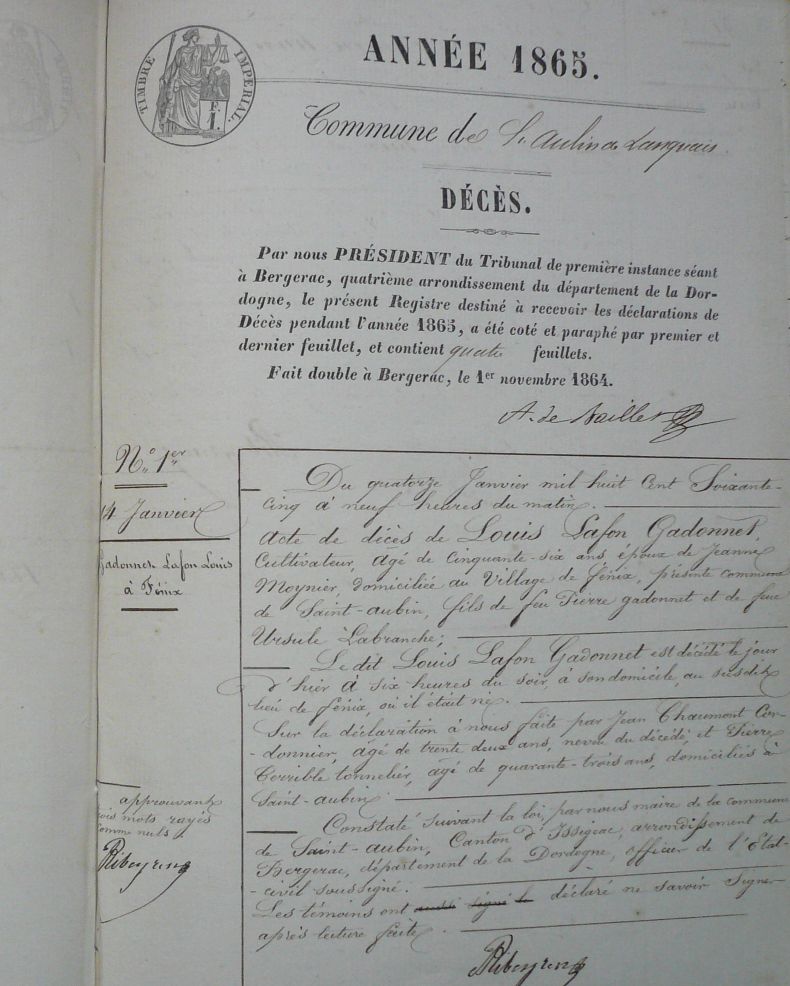 TIMBRE IMPERIAL.
F.
1.
ANNÉE 1865.
Commune de St. Aubin de Lanquais.
DÉCÈS.
Par nous PRÉSIDENT du Tribunal de première instance séant
à Bergerac, quatrième arrondissement du département de la Dor-
dogne, le présent Registre destiné à recevoir les déclarations de
Décès pendant l'année 1865, a été coté et paraphé par premier et
dernier feuillet, et contient quatre feuillets.
Fait double à Bergerac, le 1er novembre 1864.
A. de
No. 1er
14 Janvier
Gadonnet Lafon Louis
à Fénix
Du quatorze Janvier mil huit Cent Soixante-
Cinq à neuf heures du matin.
acte de décès de Louis Lafon Gadonnet,
Cultivateur, agé de Cinquante-six ans, époux de Jeanne
Moynier, domiciliée au Village de fénix, présente commune
de Saint-aubin, fils de feu Pierre gadonnet et de feue
Ursule Labranche;
Le dit Louis Lafon Gadonnet est décédé le jour
d'hier à six heures du soir, à son domicile, au susdit
lieu de fénix, où il était né.
Sur la déclaration à nous faite par Jean Chaumont Cor-
-donnier, agé de trente deux ans, neveu du décédé, et Pierre
Terrible tonnelier, agé de quarante-trois ans, domiciliés à
Saint-aubin
Constaté suivant la loi, par nous maire de la commune
de Saint-aubin, Canton d'Issigeac, arrondissement de
Bergerac, département de la Dordogne, officier de l'Etat-
-civil soussigné.
Les témoins ont aussi signé le déclaré ne savoir signer
après lecture faite.
approuvant
trois mots rayés
comme nuls
Ribeyren
Ribeyren